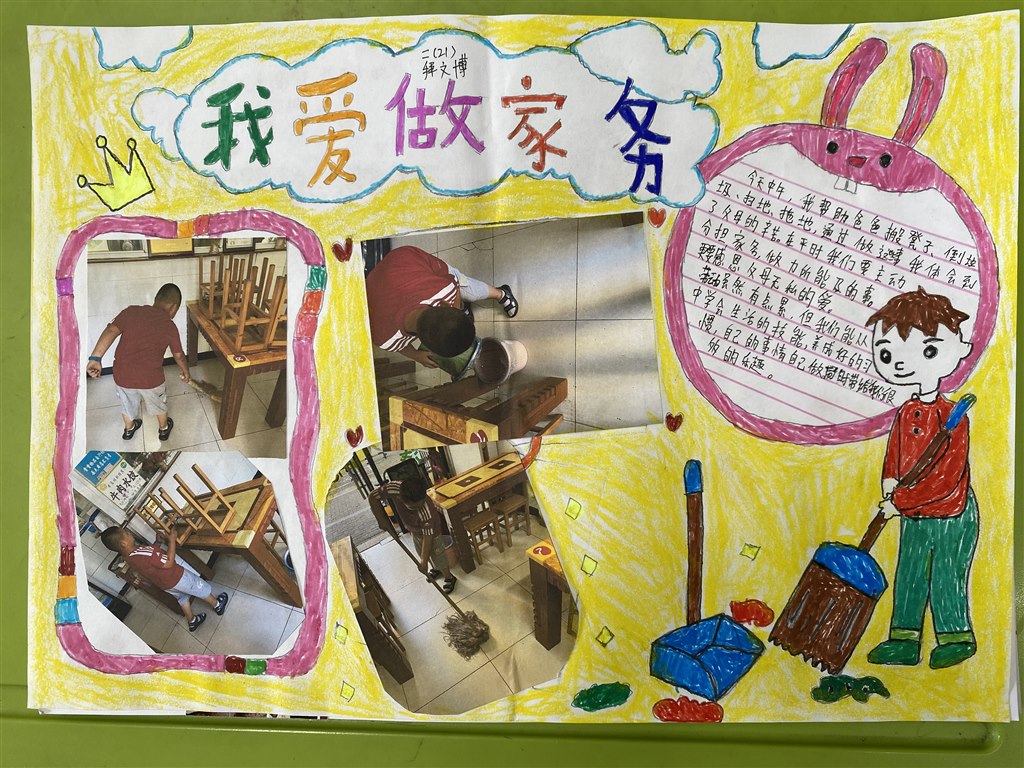 二(21)
拜文博
我爱做家务
今天中午，我帮助爸爸搬凳子、倒垃
圾、扫地、拖地，通过做这事我体会到
了父母的辛苦。在平时我们要主动
分担家务，做力所能及的事，
感恩父母无私的爱。
劳动虽然有点累，但我们能从
中学会生活的技能，养成好的习
惯，自己的事情自己做
的乐趣。
牛肉水饺